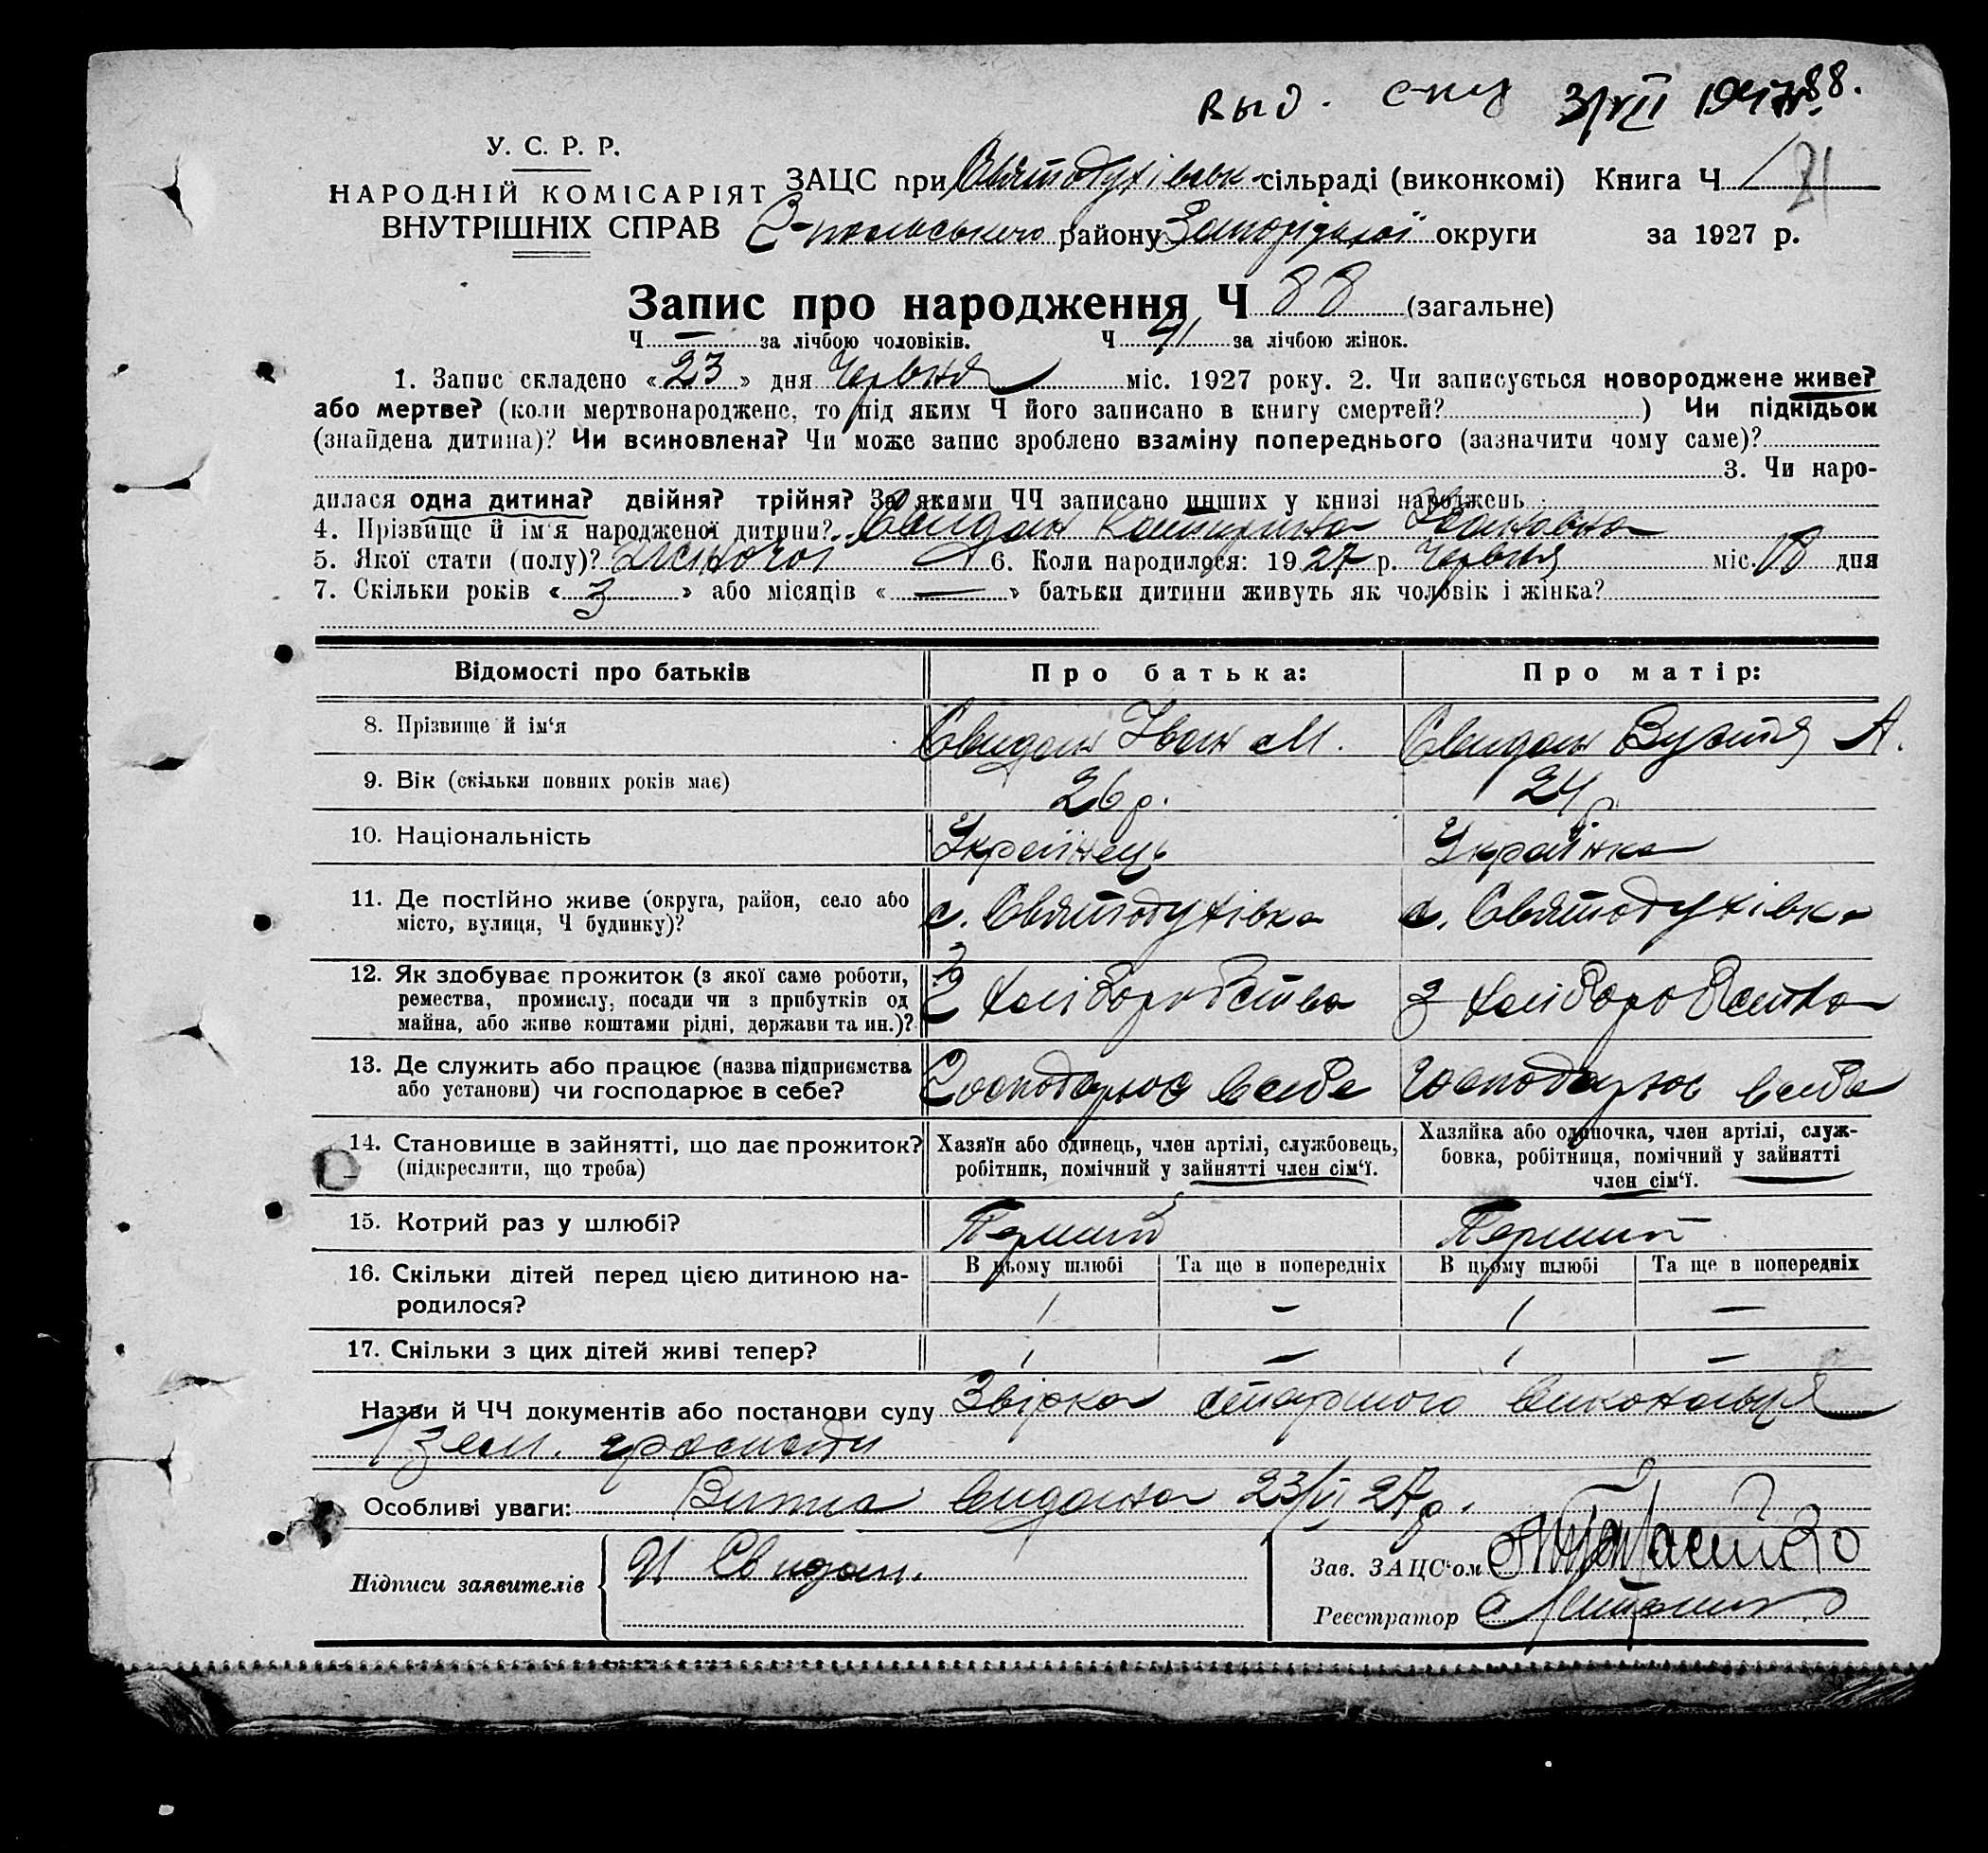 выд. 3/VII 1947 88.
У. С. Р. Р.
НАРОДНІЙ КОМІСАРІЯТ
ВНУТРІШНІХ СПРАВ
ЗАЦС при Святодухівськ сільраді (виконкомі) Книга Ч 1 21
району Запорізької округи за 1927 р.
Запис про народження Ч 88 (загальне)
Ч — за лічбою чоловіків. Ч 41 за лічбою жінок.
1. Запис складено «23» дня Червня міс. 1927 року. 2. Чи записується новороджене живе?
або мертве? (коли мертвонароджене, то під яким Ч його записано в книгу смертей? ) Чи підкідьок
(знайдена дитина)? Чи всиновлена? Чи може запис зроблено взаміну попереднього (зазначити чому саме)?
3. Чи наро-
дилася одна дитина? двійня? трійня? За якими ЧЧ записано инших у книзі народжень
4. Прізвище й ім'я народженої дитини? Свидан Катерина Івановна
5. Якої стати (полу)? Жіночої 6. Коли народилося: 1927 р. Червня міс. 18 дня
7. Скільки років «3» або місяців «—» батьки дитини живуть як чоловік і жінка?
Відомості про батьків Про батька: Про матір:
8. Прізвище й ім'я Свидан Іван М. Свидан А.
9. Вік (скільки повних років має) 26 р. 24 р.
10. Національність Українець Українка
11. Де постійно живе (округа, район, село або
місто, вулиця, Ч будинку)? с. Святодухівка с. Святодухівка
12. Як здобуває прожиток (з якої саме роботи,
ремества, промислу, посади чи з прибутків од
майна, або живе коштами рідні, держави та ин.)? З хліборобства З хліборобства
13. Де служить або працює (назва підприємства
або установи) чи господарює в себе? Господарює в себе господарює в себе
14. Становище в зайнятті, що дає прожиток?
(підкреслити, що треба)
Хазяїн або одинець, член артілі, службовець,
робітник, помічний у зайнятті член сім'ї.
Хазяйка або одиночка, член артілі, служ-
бовка, робітниця, помічний у зайнятті
член сім'ї.
15. Котрий раз у шлюбі? Перший Перший
В цьому шлюбі Та ще в попередніх В цьому шлюбі Та ще в попередніх
16. Скільки дітей перед цією дитиною на-
родилося? 1 — 1 —
17. Скільки з цих дітей живі тепер? 1 — 1 —
Назви й ЧЧ документів або постанови суду Звірка старшого виконавця
зем. громади
Особливі уваги: Випис видана 23/VI 27 р.
Підписи заявителів И Свидан.
Зав. ЗАЦС'ом
Реєстратор